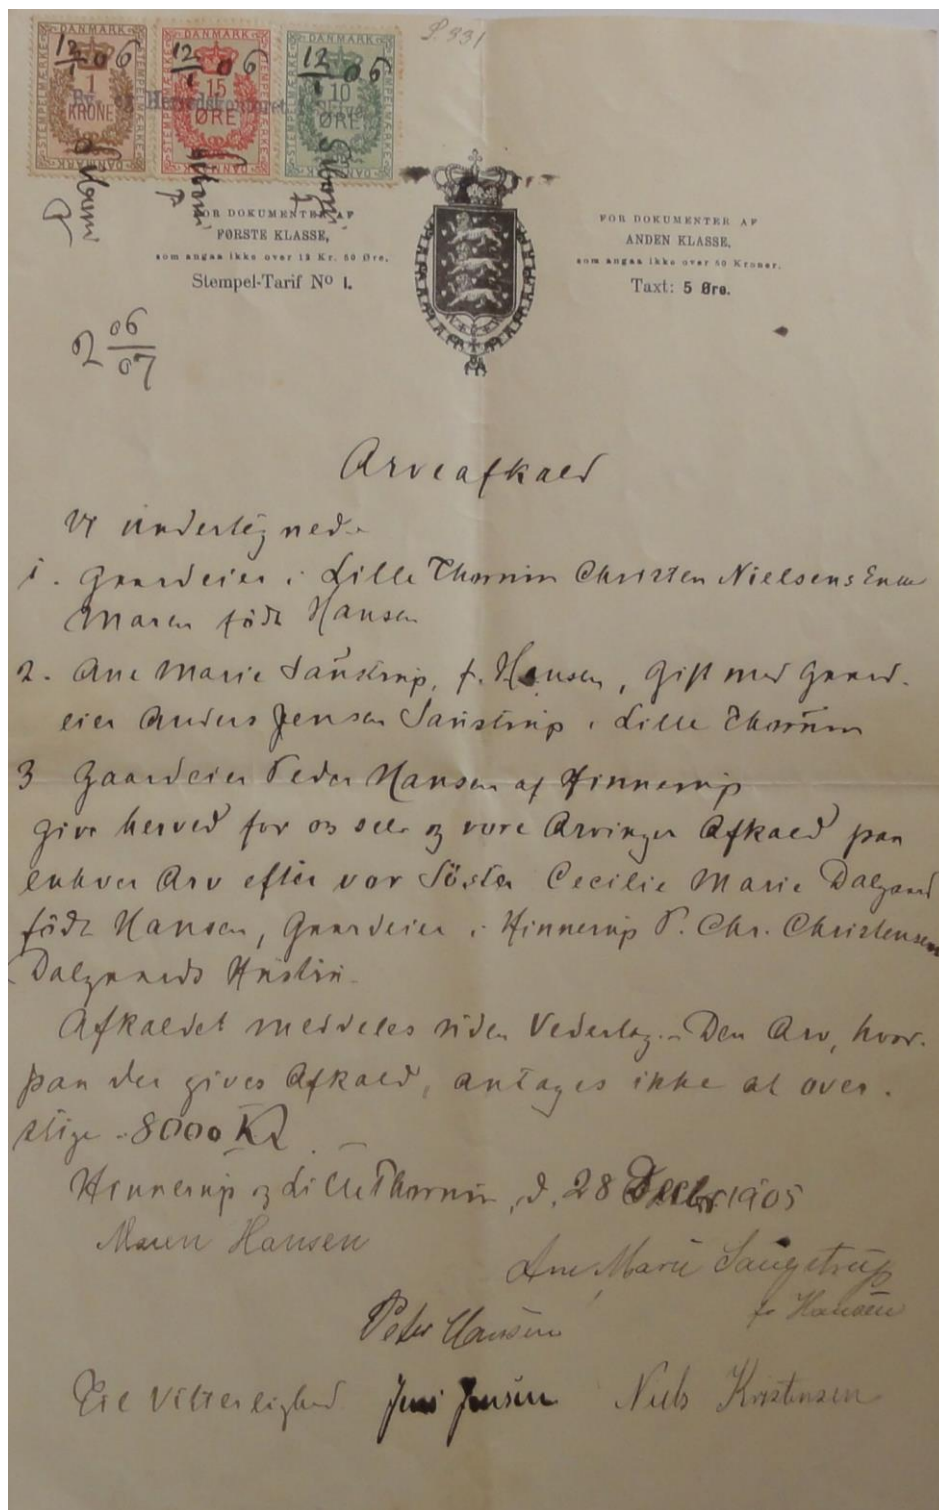 P 931
DANMARK DANMARK DANMARK
STEMPELMÆRKE STEMPELMÆRKE STEMPELMÆRKE
12/1 06 12/1 06 12/1 06
1 KRONE 15 ØRE 10 ØRE
By- og Herredskontoret
DANMARK DANMARK DANMARK
FOR DOKUMENTER AF
FØRSTE KLASSE,
som angaa ikke over 12 Kr. 50 Øre.
Stempel-Tarif No 1.
FOR DOKUMENTER AF
ANDEN KLASSE,
som angaa ikke over 50 Kroner.
Taxt: 5 Øre.
2 06/07
Arveafkald
Vi undertegnede
1. Gaardeier i Lille Thorum Christen Nielsens Enke
Maren födt Hansen
2. Ane Marie Saustrup, f. Hansen, gift med Gaard-
eier Anders Jensen Saustrup i Lille Thorum
3 Gaardeier Peder Hansen af Hinnerup
give herved for os selv og vore Arvinger Afkald paa
enhver Arv efter vor Söster Cecilie Marie Dalgaard
födt Hansen, Gaardeier i Hinnerup P. Chr. Christensen
Dalgaards Hustru.
Afkaldet meddeles uden Vederlag. - Den Arv, hvor-
paa der gives Afkald, antages ikke at over-
stige - 8000 Kr.
Hinnerup og Lille Thorum, d. 28 Decbr. 1905
Maren Hansen
Ane Marie Saugstrup
f. Hansen
Peder Hansen
Til Vitterlighed Jens Jensen Niels Kristensen